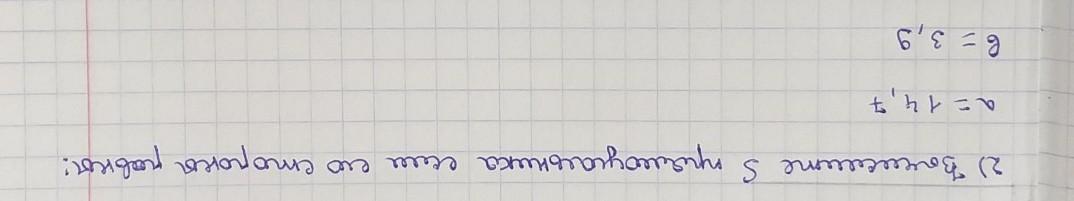 2) Вычислите S прямоугольника если его стороны равны:
a = 14,7
в = 3,9